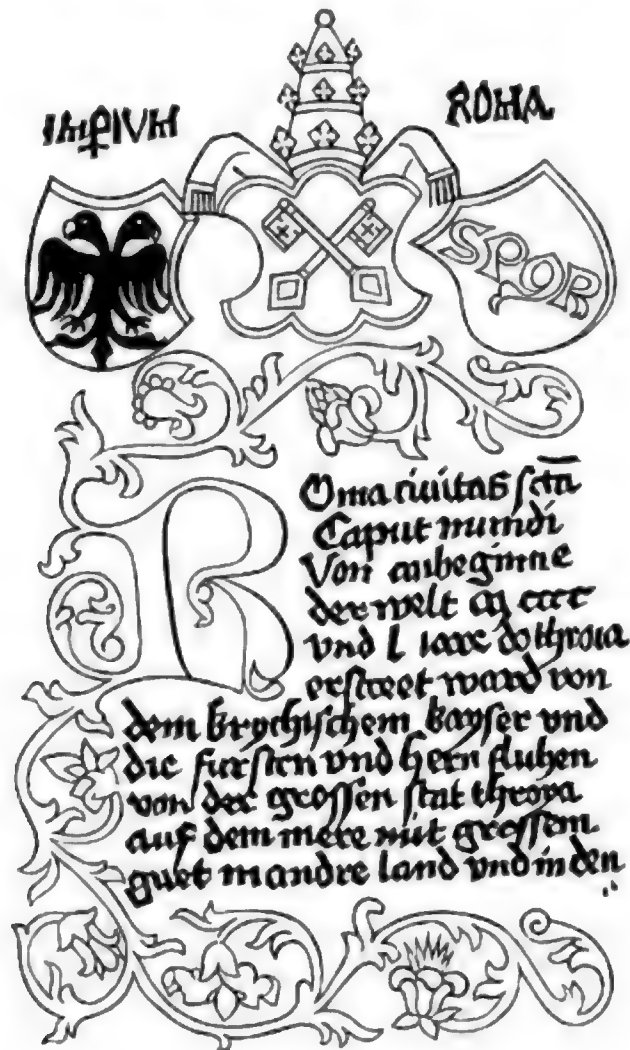 IMPIVM
ROMA
SPQR
Roma ciuitas sctā
Caput mundi
Von anbeginne
der welt
vnd l iaar do throia
erstoeet ward von
dem krychischem kayser vnd
die fursten vnd hern fluhen
von der grossen stat throya
auf dem mere mit grossem
guet in andre land vnd in den